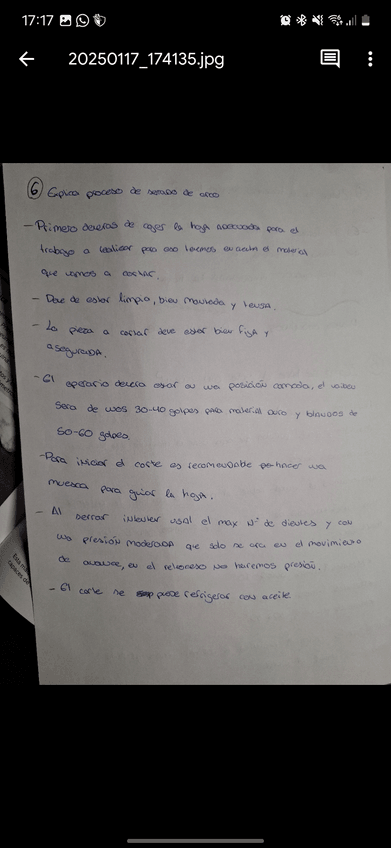 17:17
20250117_174135.jpg
6 Explica proceso de serrado de arco
- Primero deveras de coger la hoja adecuada para el
trabajo a realizar para eso tenemos en cuenta el material
que vamos a cortar.
- Deve de estar limpia, bien montada y tensa.
- La pieza a cortar deve estar bien fija y
asegurada.
- El operario devera estar en una posición comoda, el
sera de unos 30-40 golpes para material duro y blandos de
50-60 golpes.
- Para iniciar el corte es recomendable hacer una
muesca para guiar la hoja.
- Al serrar intentar usar el max Nº de dientes y con
una presión moderada que solo se ara en el movimiento
de avance, en el retroceso no haremos presión.
- El corte se puede refrigerar con aceite